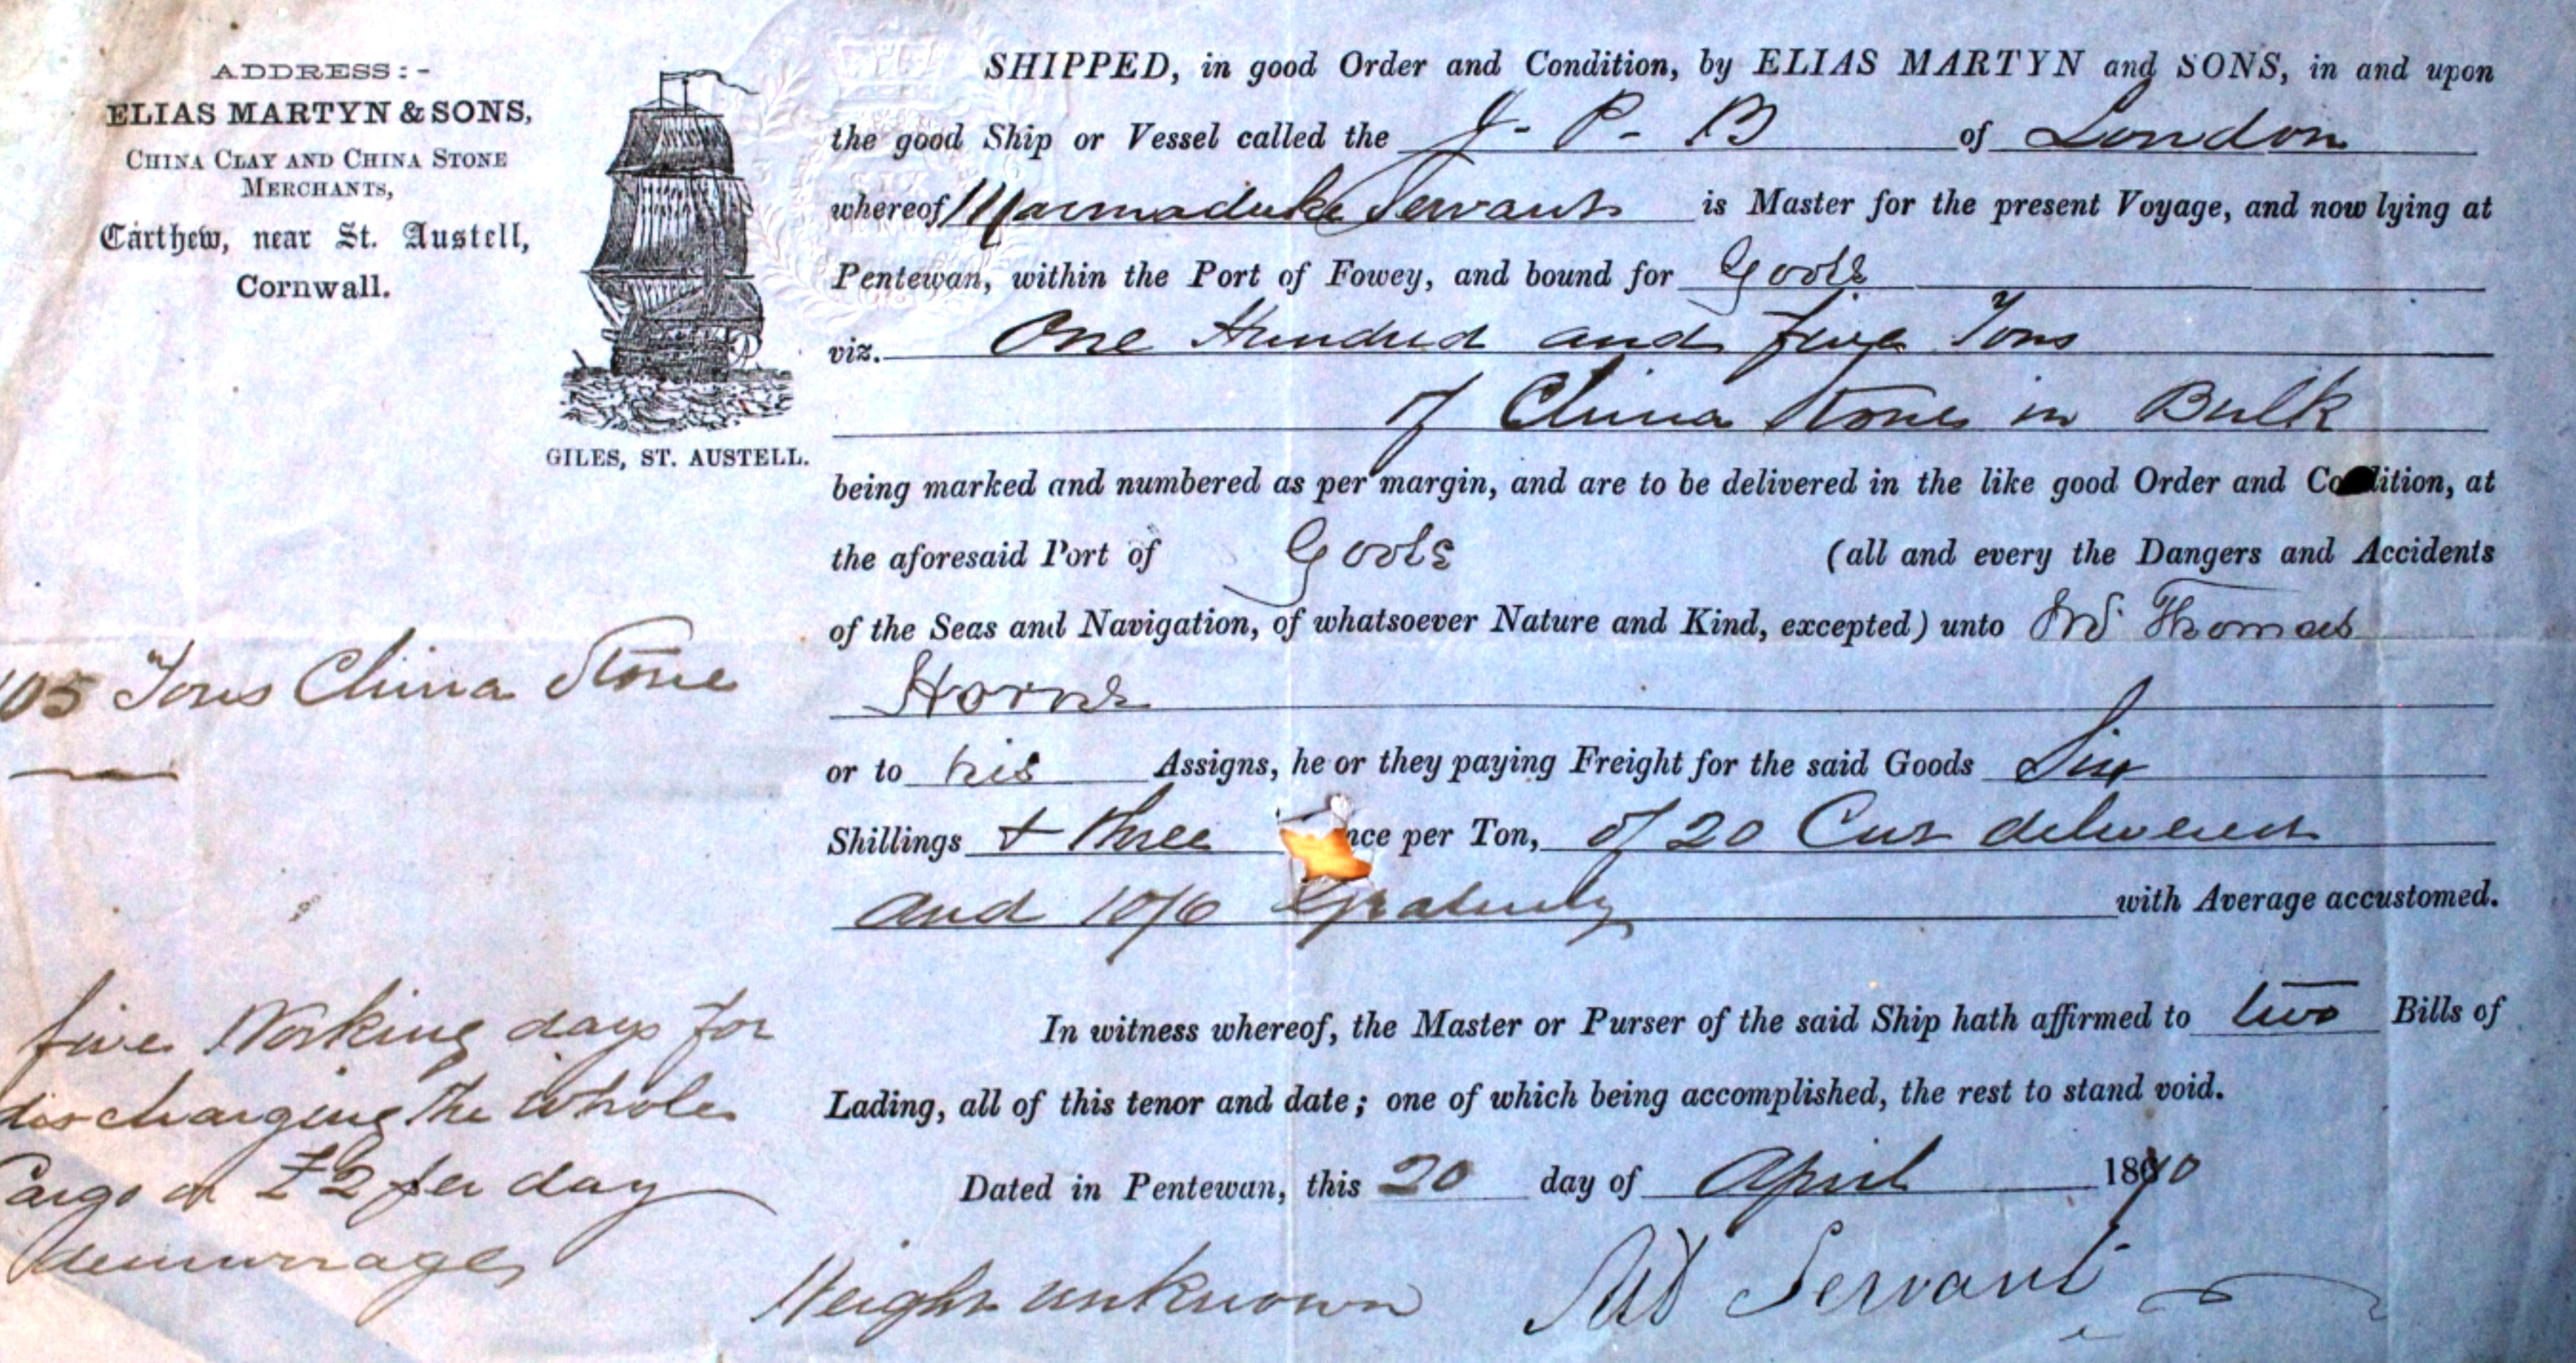 ADDRESS:-
ELIAS MARTYN & SONS,
CHINA CLAY AND CHINA STONE
MERCHANTS,
Carthew, near St. Austell,
Cornwall.
GILES, ST. AUSTELL.
SHIPPED, in good Order and Condition, by ELIAS MARTYN and SONS, in and upon
the good Ship or Vessel called the J - P - B of London
whereof Marmaduke Servant is Master for the present Voyage, and now lying at
Pentewan, within the Port of Fowey, and bound for Goole
viz. One Hundred and five Tons
of China Stone in Bulk
being marked and numbered as per margin, and are to be delivered in the like good Order and Co dition, at
the aforesaid Port of Goole (all and every the Dangers and Accidents
of the Seas and Navigation, of whatsoever Nature and Kind, excepted) unto Mr Thomas
Horne
or to his Assigns, he or they paying Freight for the said Goods Six
Shillings + three nce per Ton, of 20 Cwt delivered
and 10/6 Gratuity with Average accustomed.
In witness whereof, the Master or Purser of the said Ship hath affirmed to two Bills of
Lading, all of this tenor and date; one of which being accomplished, the rest to stand void.
Dated in Pentewan, this 20 day of April 1870
105 Tons China Stone
five Working days for
discharging the whole
Cargo or £2 per day
demurrage
Weight unknown
Servant